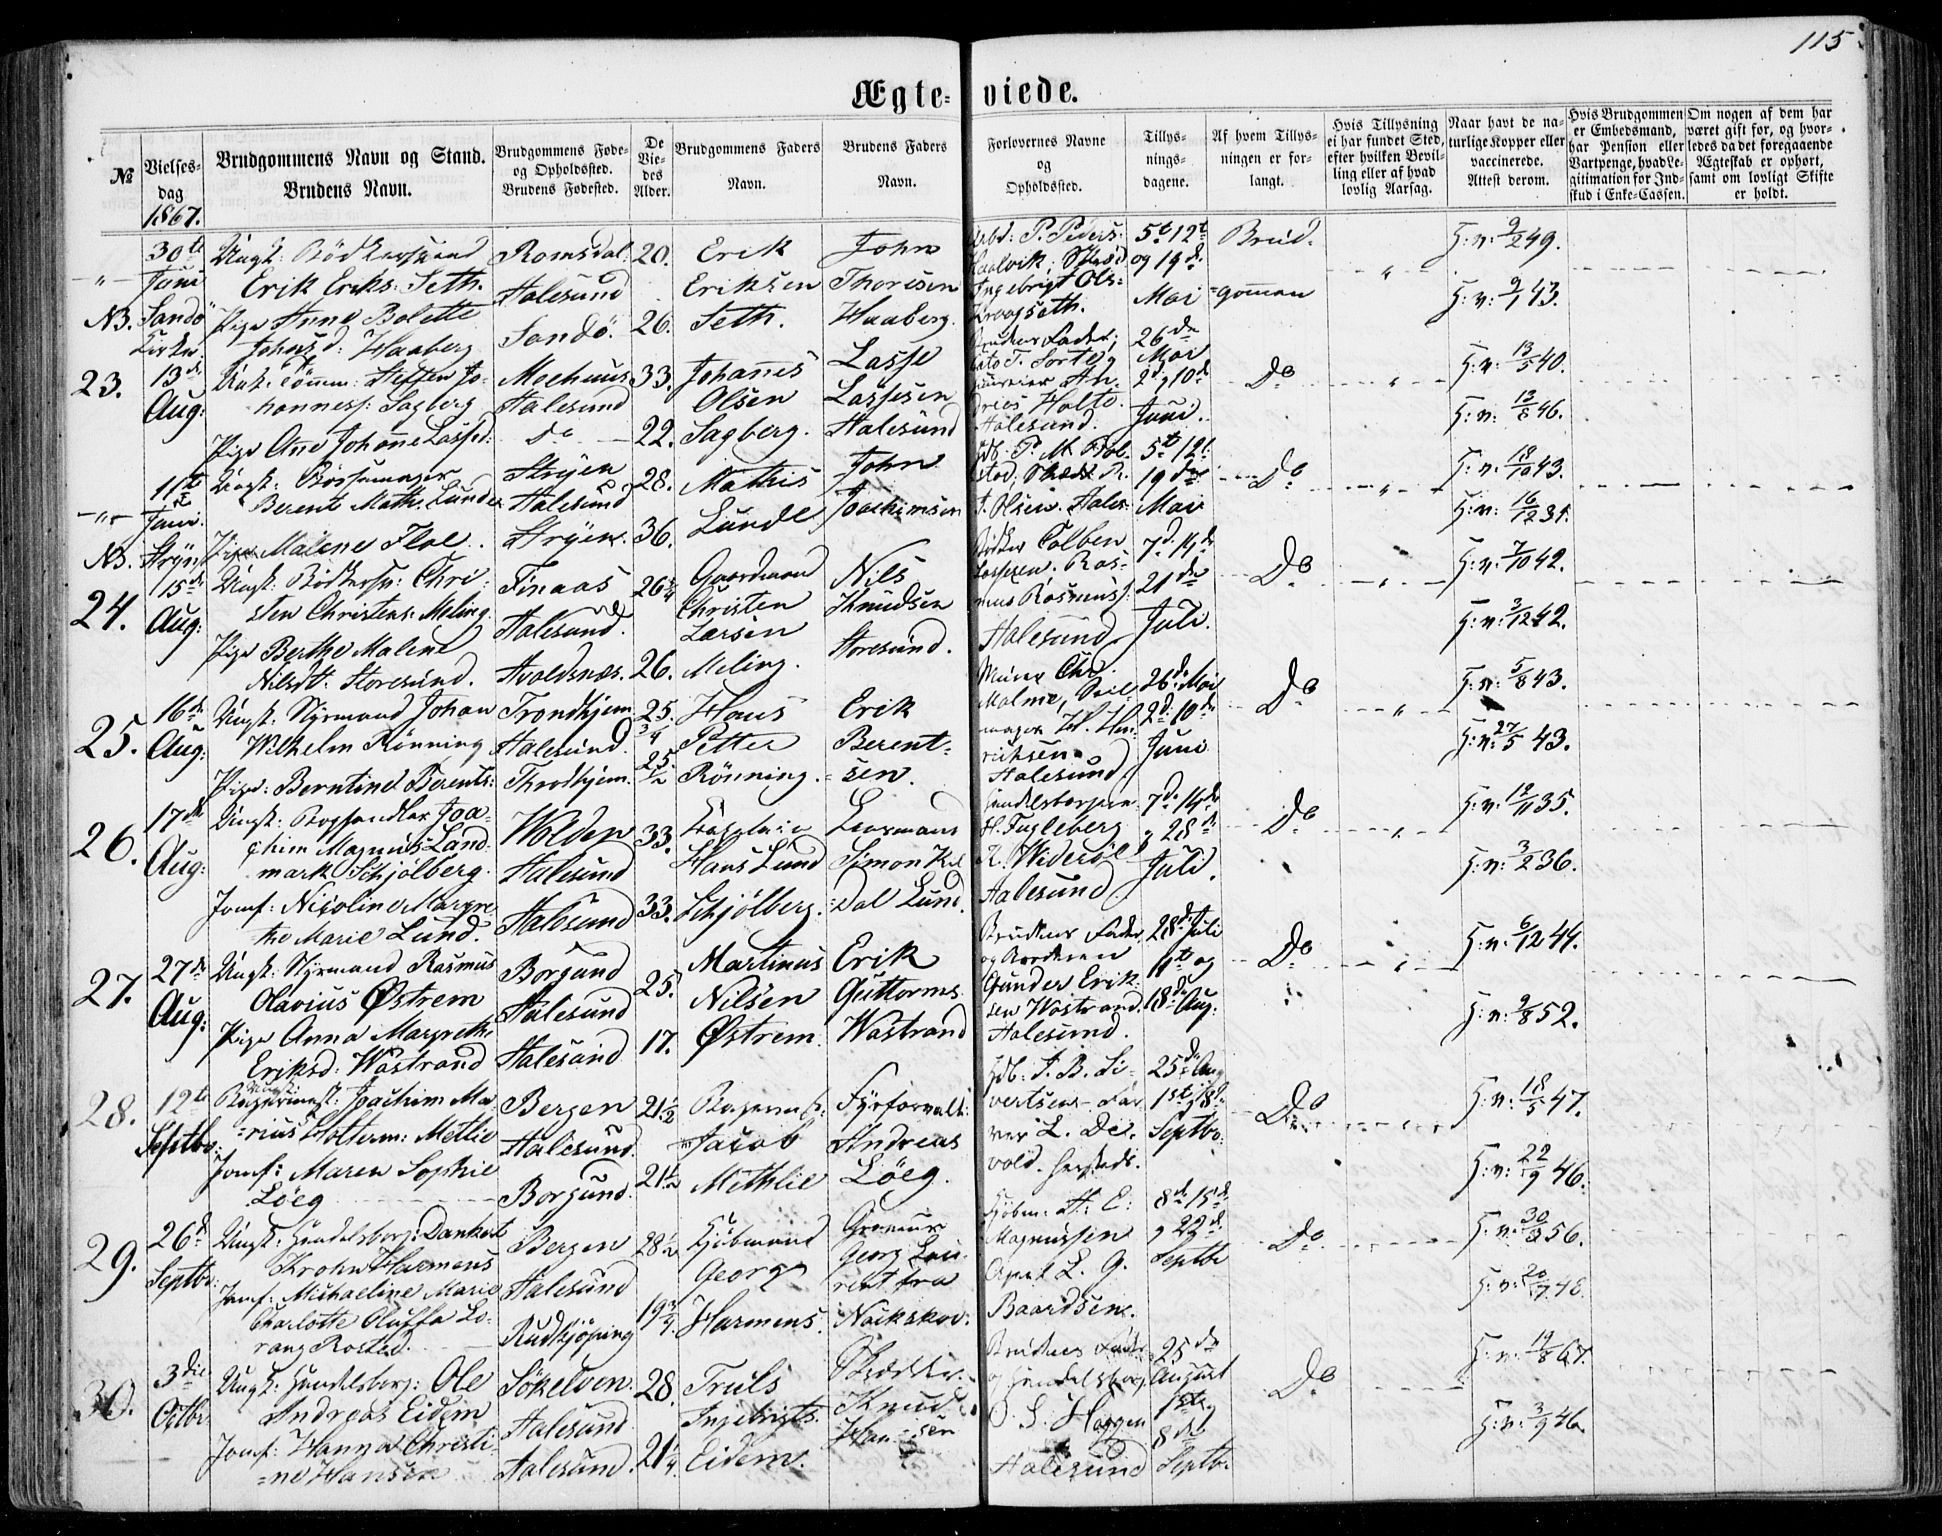 115
Ægteviede.
№
Vielsesdag
1867.
Brudgommens Navn og Stand.
Brudens Navn.
Brudgommens Føde- og Opholdssted.
Brudens Fødested.
De Viedes Alder.
Brudgommens Faders Navn.
Brudens Faders Navn.
Forlovernes Navne og Opholdssted.
Tillysningsdagene.
Af hvem Tillysningen er forlangt.
Hvis Tillysning ei har fundet Sted, efter hvilken Bevilling eller af hvad lovlig Aarsag.
Naar havt de naturlige Kopper eller vaccinerede. Attest derom.
Hvis Brudgommen er Embedsmand, har Pension eller Vartpenge, hvad Legitimation for Indskud i Enke-Cassen.
Om nogen af dem har været gift før, og hvorledes da det foregaaende Ægteskab er ophørt, samt om lovligt Skifte er holdt.
30te Juni
NB. Sandö Kirke
Erik Eriks: Seth.
Pige Anne Bolette
Johnsd: Haaberg
Romsdal.
Aalesund
Sandö.
20.
26.
Erik
Eriksen
Seth.
John
Thoresen
Haaberg.
Arbd: P. Peders:
Ingebrigt Ols:
5te 12te
og 19de
Mai
Brud-
=gomen
G: v: 9/2 49.
G: v: 9/1 43.
23.
13de
Aug:
Ungk. Tömm: Steffen Jo-
hanness: Sagberg
Pige Ane Johane Lassed:
Aalesund
Do
33.
22.
Johanes
Olsen
Sagberg.
Lasse
Lassesen
Aalesund
Brudens Fader,
Holte
Aalesund.
26de
Mai
2d. 10de
Juni.
Do
G: v: 13/5 40.
G: v: 13/8 46.
11te
Juni.
NB. Stryen
Ungk: Bössemager
Berent Maths. Lunde
Pige Malene Floe.
Stryen
Aalesund
Stryen.
28.
36.
Mathis
Lunde
John
Joachimsen
5te 12te
19de
Mai
Do
G: v: 18/10 43.
G: v: 16/12 31.
24.
15de
Aug:
Ungk: Bödkersv: Chri-
sten Christens: Meling.
Pige Berthe Malene
Nilsdt. Storesund.
Finaas
Aalesund.
Avaldsnæs.
26 1/4
26.
Gaardmand
Christen
Larsen
Meling.
Nils
Knudsen
Storesund.
Bödker Tolben
Lassesen. Ras-
mus Rasmuss:
Aalesund
7d. 14de
21de
Juli.
Do
G: v: 7/10 42.
G: v: 3/12 42.
25.
16de
Aug:
Ungk: Styrmand Johan
Wilhelm Rönning
Pige: Berntine Berents:
Trondhjem
Aalesund.
Throdhjem.
25 3/4
25 1/2
Hans
Petter
Rönning.
Erik
Berent-
sen.
Murer Chr.
Malme, Seil-
mager H. Hen-
riksen
Aalesund.
26de Mai
2d. 10de
Juni
Do
G: v: 5/8 43.
G: v: 27/5 43.
26.
17de
Aug:
Ungk: Boghandler Joa-
chim Magnus Land-
mark Schjölberg.
Jomf: Nicoline Margre-
the Marie Lund.
Wolden
Aalesund
Aalesund
33.
33.
Hans Lund
Schjölberg.
Lensmand
Simon Kil
=dal Lund.
Handelsborgern
H. Fugleberg
K. Wideröe,
Aalesund
7d. 14de
28de
Juli.
Do
G: v: 13/11 35.
G: v: 3/2 36.
27.
27de
Aug:
Ungk: Styrmand Rasmus
Olavius Østrem
Pige Anna Margrethe
Eriksd: Wastrand
Borgund
Aalesund
Aalesund
25.
17.
Martinus
Nilsen
Østrem
Erik
Guttorms.
Wastrand
Brudens Fader
og Broderen
Gunder Erik-
sen Wastrand.
Aalesund.
28de Juli
4te og
18de Aug:
Do
G: v: 6/12 44.
G: v: 9/8 52.
28.
12te
Septbr:
Ungk: Joachim Ma
-rius Holterm: Metlie
Jomf: Maren Sophie
Löeg
Bergen
Aalesund.
Borgund.
21 1/2
21 1/2
Jacob
Methlie
Fyrforvalt:
Andreas
Löeg.
Hdb: J. B. Si-
vertsen.
25de Aug
1ste, 8de
Septbr:
Do
G: v: 18/5 47.
G: v: 22/9 46.
29.
26de
Septbr:
Ungk: Handelsborg: Dankert
Krohn Harmens
Jomf: Michaeline Marie
Charlotte Oluffa Lo-
rang Rosted.
Bergen
Aalesund
Rudkjöping
28 1/2
19 3/4
Kjöbmand
Georg
Harmens.
Georg Lau-
rent fra
Nackskov.
Kjöbm: H. E.
Magnussen
L. G.
Baardsen.
8de 15de
22de
Septbr
Do
G: v: 30/8 56.
G: v: 20/7 48.
30.
3die
Octbr
Ungk: Handelsborg: Ole
Andreas Eidem
Jomf: Hanna Christi-
=ne Hansen
Sökelven.
Aalesund.
Aalesund.
28.
21 1/4
Truls
Ingebrigts.
Eidem.
Knud
Hansen
Brudens Fader
og Handelsborg
O. L. Haggen
Aalesund
25de
August
1ste
8de
Septbr.
Do
G: v: 19/8 67.
G: v: 3/9 46.